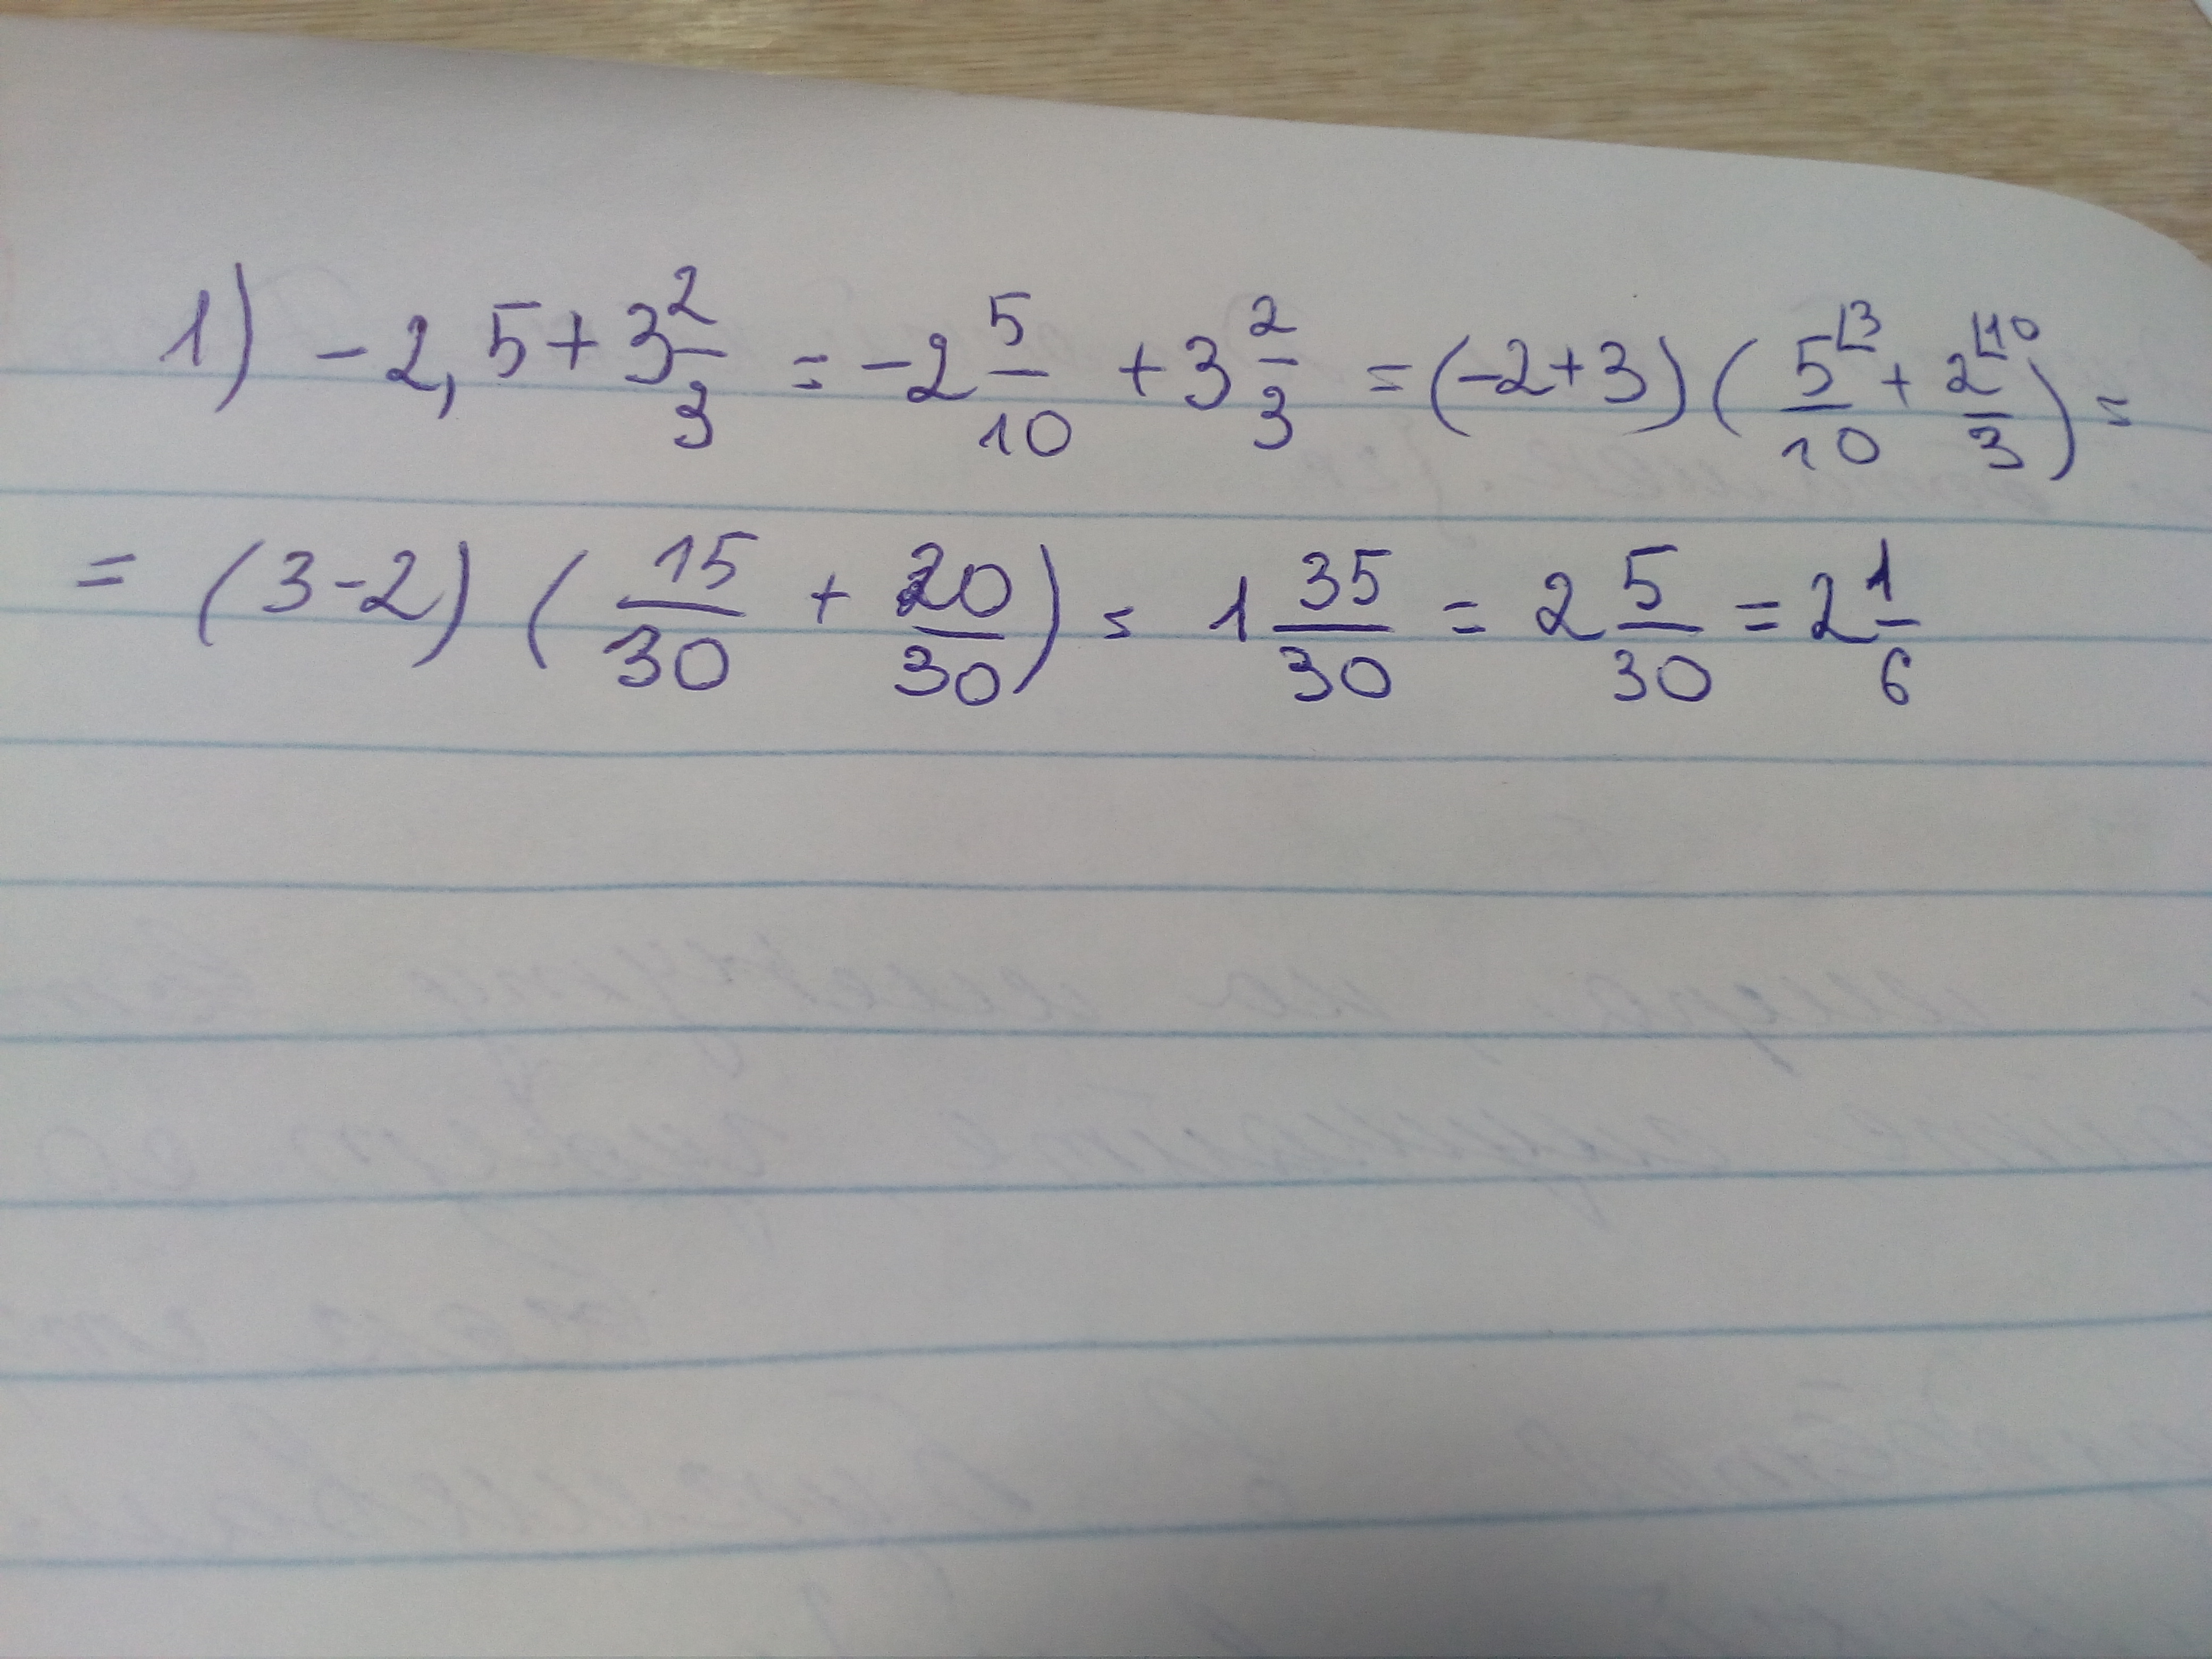 1) -2,5+3 2/3 = -2 5/10 + 3 2/3 = (-2+3) (5⌊3/10 + 2⌊10/3) =
= (3-2) (15/30 + 20/30) = 1 35/30 = 2 5/30 = 2 1/6